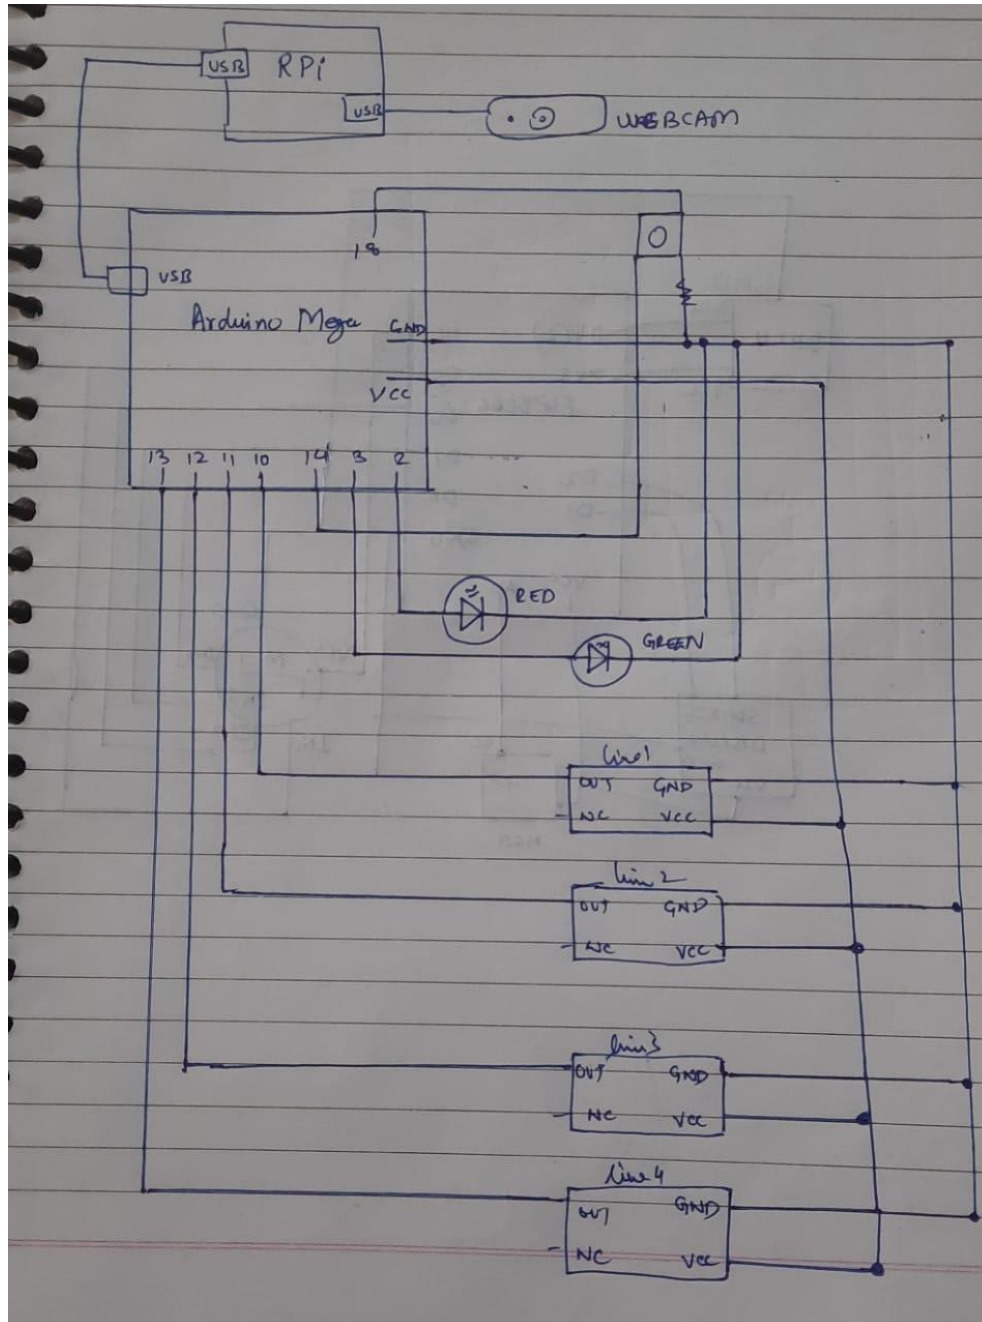 USB RPi
USB
WEBCAM
18
USB
Arduino Mega GND
VCC
13 12 11 10 14 3 2
RED
GREEN
line1
OUT GND
NC VCC
line 2
OUT GND
NC VCC
line3
OUT GND
NC VCC
line 4
OUT GND
NC VCC